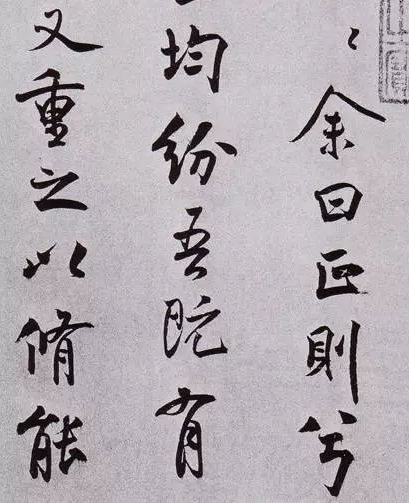 余曰正則兮
均紛吾既有
又重之以脩能